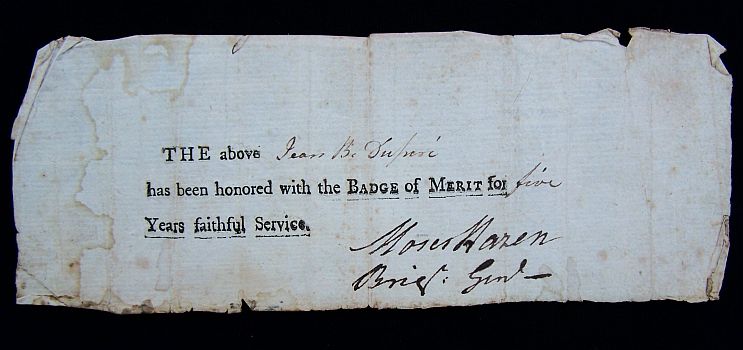 THE above Jean B. Dupré
has been honored with the BADGE of MERIT for five
Years faithful Service.
Moses Hazen
Brigr: Genl